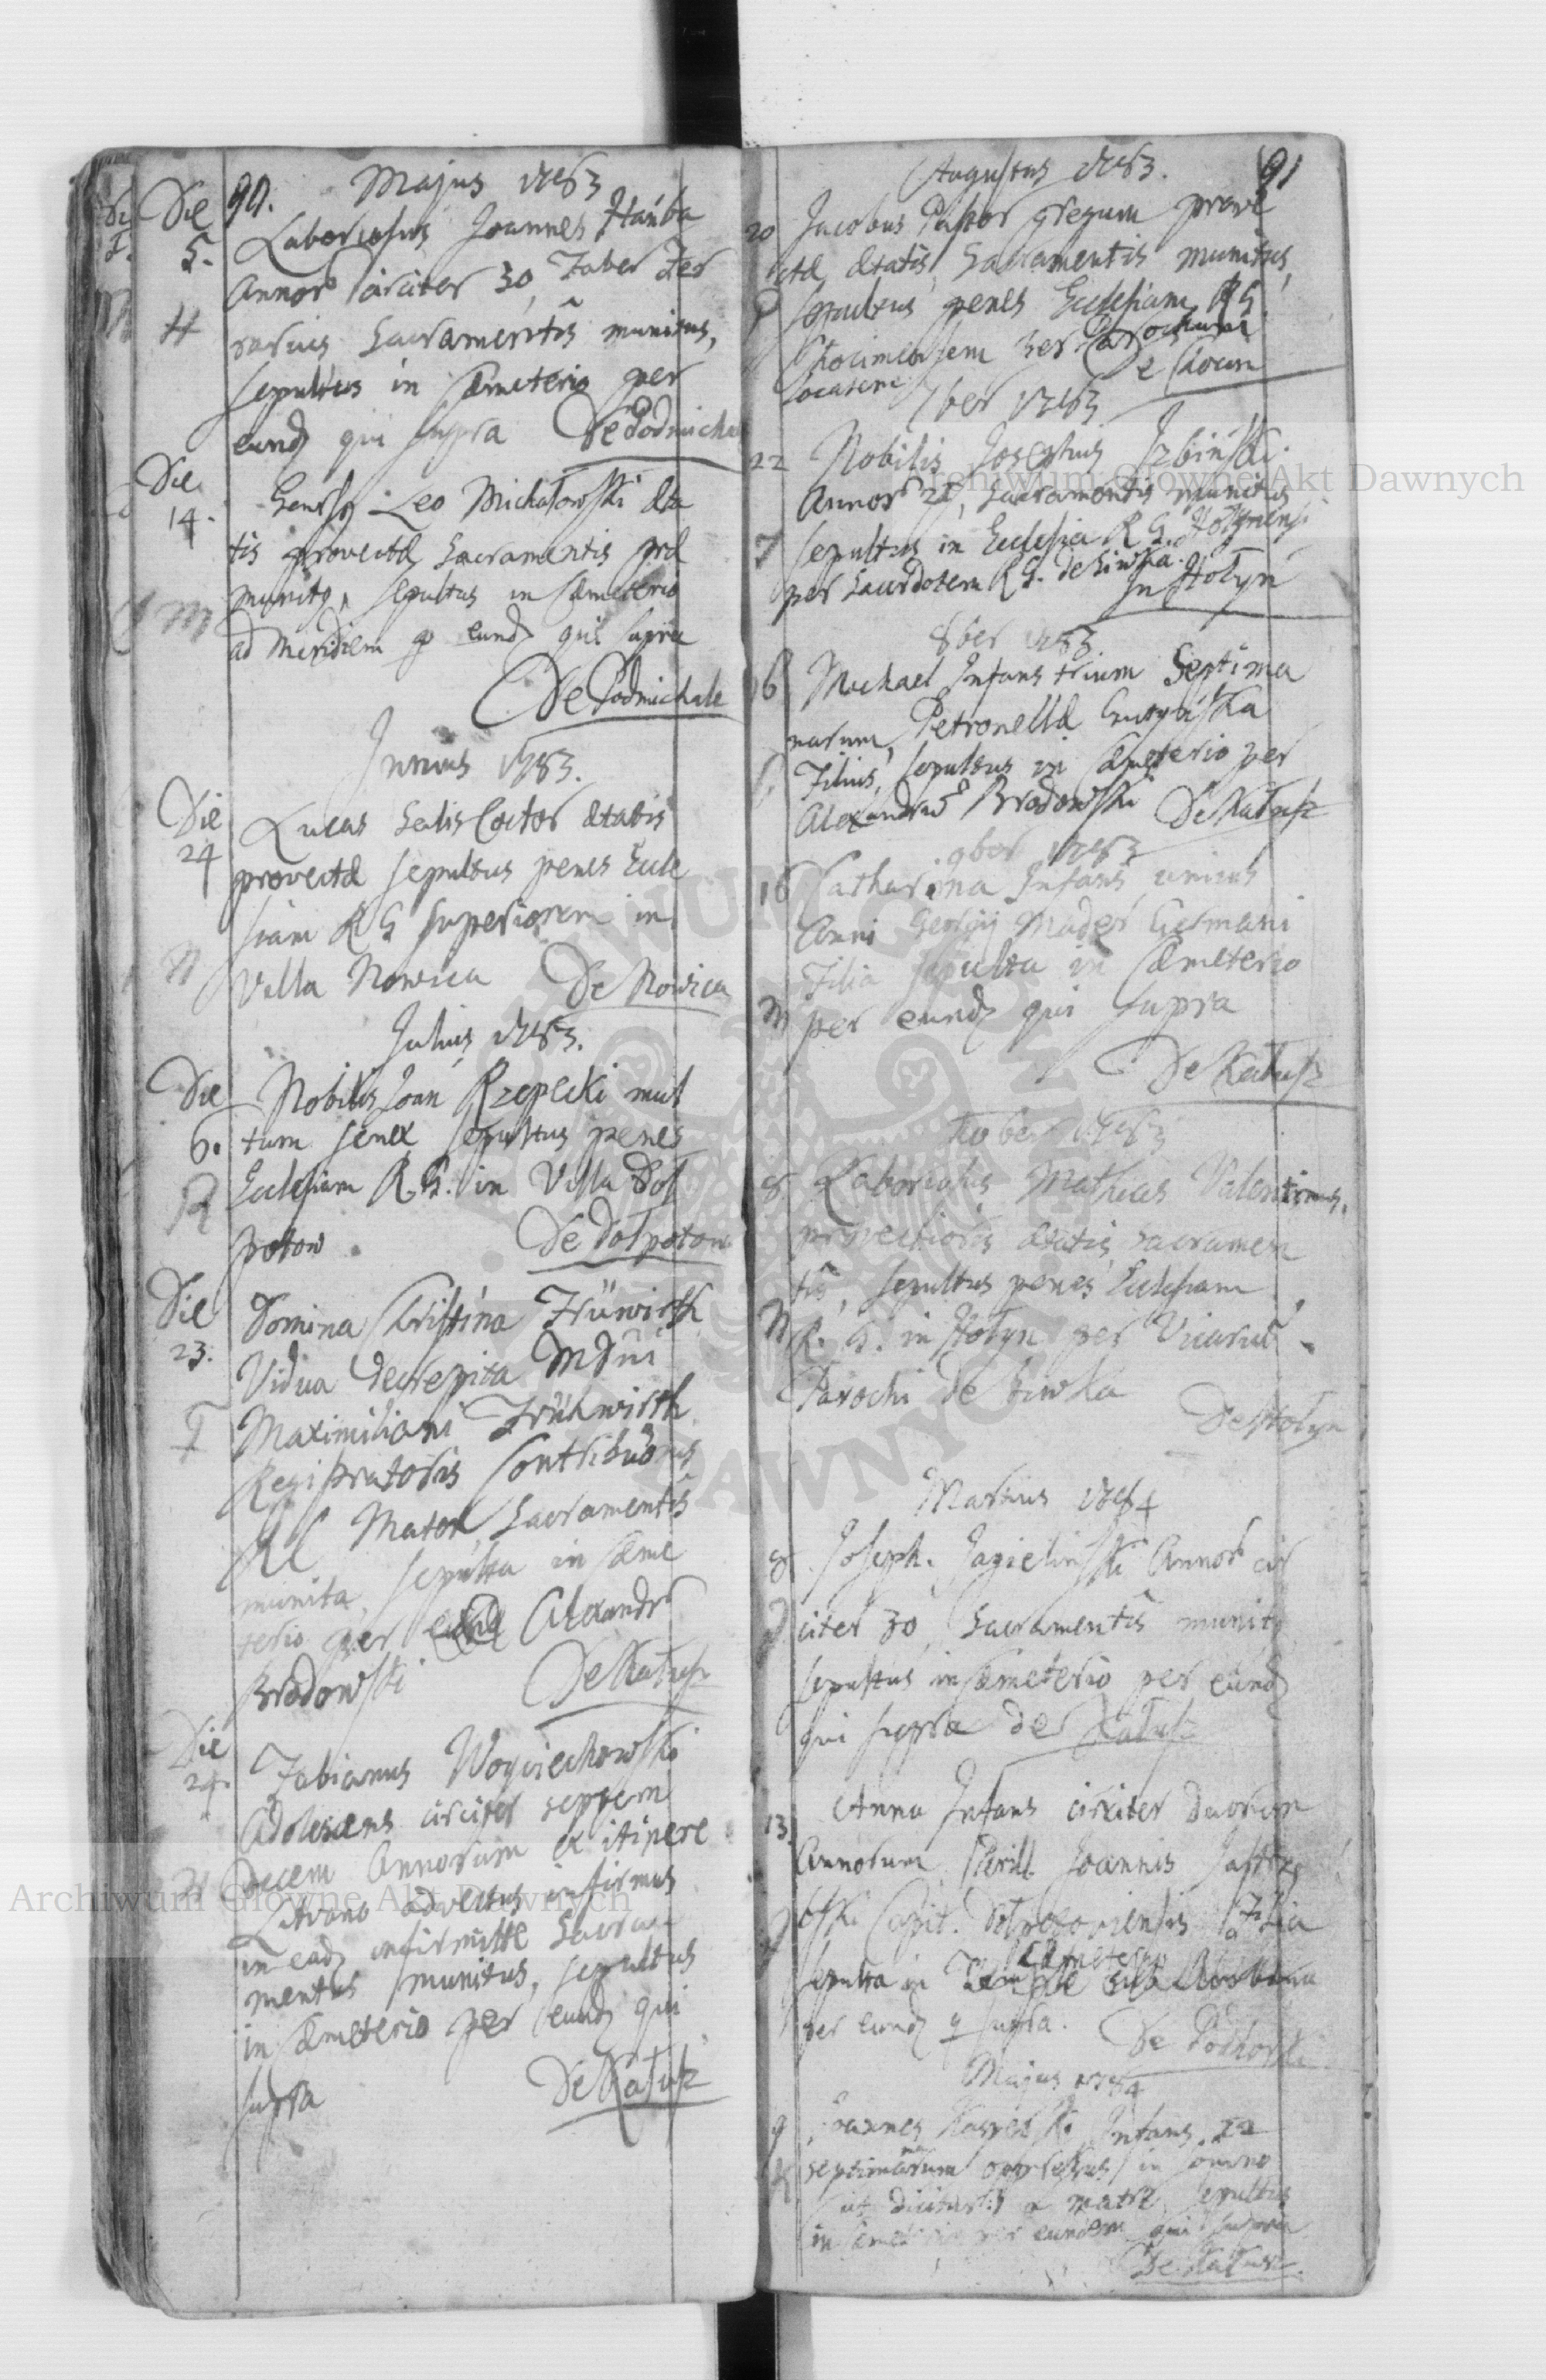 90. Majus 1783
Die 5. Laboriosus Joannes Hańba
Annor circiter 30, Faber Fer
rarius Sacramentis munitus,
sepultus in Cæmeterio per
eund qui supra De Podmicha
Die 14. Leo Michałowski æta
tis provectæ Sacramentis præ
munitq, sepultus in Cæmeterio
ad Meridiem p eund qui supra
De Podmichale
Junius 1783.
Die 24 Lucas Salis Coctor ætatis
provectæ sepultus penes Eccle
siam R G superiorem in
Villa Nowica De Nowica
Julius 1783.
Die 6. Nobilis Joan Rzepecki mul
tum senex sepultus penes
Ecclesiam R. G. in Villa Doł
potow De Dołpotow
Die 23. Domina Christina Früwirth
Vidua decrepita MDni
Maximiliani Frühwirth
Registratoris Contribuõnis
Mater, Sacramentis
munita, sepulta in Cæme
terio per Alexandr
Brodowski De Kałusz
Die 24. Fabianus Woyciechowski
Adolescens circiter septem
decem Annorum ex itinere
advectus infirmus
in ead infirmitte Sacra
mentis munitus, sepultus
in Cæmeterio per eund qui
supra De Kałusz
Augustus 1783. 91
20 Jacobus Pastor gregum prove
ctæ ætatis, Sacramentis munitus,
sepultus penes Ecclesiam R G
Chocimensem per Parochum
Locatem De Chocim
7ber 1783
22 Nobilis Josephus Izbiński
Annor 21, Sacramentis munitus
sepultus in Ecclesia R G. Hołynensi
per Sacerdotem R G. de Siwka. In Hołyn
8ber 1783
16 Michael Infans trium Septima
narum, Petronellæ
Filius, sepultus in Cæmeterio per
Alexandrũ Brodowski De Kałusz
9ber 1783
16 Catharina Infans unius
Anni Georgij Mader Germani
Filia sepulta in Cæmeterio
per eund qui supra
De Kałusz
Xober 1783
8 Laboriosus Mathias Valentinus,
provectioris ætatis, Sacramen
tis, sepultus penes Ecclesiam
R. G. in Hołyn per Vicariũ
Parochi de Siwka
De Hołyn
Martius 1784
8 Joseph. Jagielinski Annor cir
citer 30, Sacramentis munitq
sepultus in Cæmeterio per eund
qui supra de Kałusz
13. Anna Infans circiter duorum
Annorum Perill. Joannis
Capit. Filia
sepulta in Cæmeterio
per eund q supra. De Podhorki
Majus 1784
9 Joannes Infans 12
septimanarum oppressus in somno
ut dicitur a matre, sepultus
in Cæmeterio per eundem qui supra
De Kałusz.
Archiwum Główne Akt Dawnych
Archiwum Główne Akt Dawnych